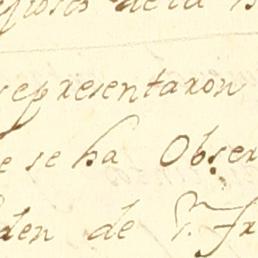 de la
representaron
e se ha Obser
den de